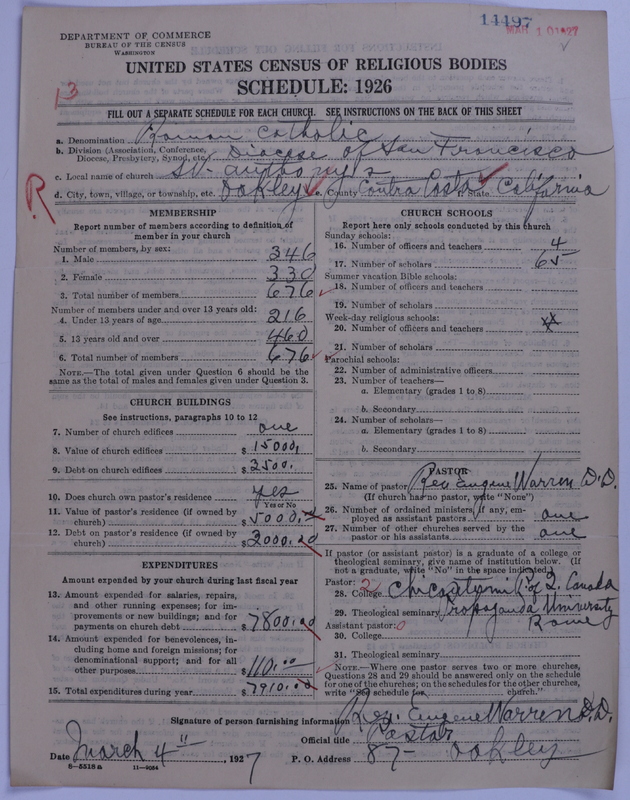 14497
MAR 10 1927
DEPARTMENT OF COMMERCE
BUREAU OF THE CENSUS
WASHINGTON
UNITED STATES CENSUS OF RELIGIOUS BODIES
SCHEDULE: 1926
13
FILL OUT A SEPARATE SCHEDULE FOR EACH CHURCH. SEE INSTRUCTIONS ON THE BACK OF THIS SHEET
a. Denomination Roman Catholic
b. Division (Association, Conference, Diocese, Presbytery, Synod, etc.) Diocese of San Francisco
c. Local name of church St. Anthony's
R
d. City, town, village, or township, etc. Oakley e. County Contra Costa f. State California
MEMBERSHIP
Report number of members according to definition of
member in your church
Number of members, by sex:
1. Male 346
2. Female 330
3. Total number of members 676
Number of members under and over 13 years old:
4. Under 13 years of age 216
5. 13 years old and over 460
6. Total number of members 676
NOTE.—The total given under Question 6 should be the
same as the total of males and females given under Question 3.
CHURCH BUILDINGS
See instructions, paragraphs 10 to 12
7. Number of church edifices one
8. Value of church edifices $15000.
9. Debt on church edifices $2500.
10. Does church own pastor's residence yes
Yes or No
11. Value of pastor's residence (if owned by
church) $5000.00
12. Debt on pastor's residence (if owned by
church) $2000.00
EXPENDITURES
Amount expended by your church during last fiscal year
13. Amount expended for salaries, repairs,
and other running expenses; for im-
provements or new buildings; and for
payments on church debt $7800.00
14. Amount expended for benevolences, in-
cluding home and foreign missions; for
denominational support; and for all
other purposes $110.00
15. Total expenditures during year $7910.00
CHURCH SCHOOLS
Report here only schools conducted by this church
Sunday schools:
16. Number of officers and teachers 4
17. Number of scholars 65
Summer vacation Bible schools:
18. Number of officers and teachers
19. Number of scholars
Week-day religious schools:
20. Number of officers and teachers xx
21. Number of scholars
Parochial schools:
22. Number of administrative officers
23. Number of teachers—
a. Elementary (grades 1 to 8)
b. Secondary
24. Number of scholars—
a. Elementary (grades 1 to 8)
b. Secondary
PASTOR
25. Name of pastor Rev Eugene Warren D.D.
(If church has no pastor, write "None")
26. Number of ordained ministers, if any, em-
ployed as assistant pastors one
27. Number of other churches served by the
pastor or his assistants one
If pastor (or assistant pastor) is a graduate of a college or
theological seminary, give name of institution below. (If
not a graduate, write "No" in the space indicated.)
Pastor: 2
28. College Canada
29. Theological seminary Propaganda University
Rome
Assistant pastor: 0
30. College
31. Theological seminary
NOTE.—Where one pastor serves two or more churches,
Questions 28 and 29 should be answered only on the schedule
for one of the churches; on the schedules for the other churches,
write "See schedule for church."
Signature of person furnishing information Rev. Eugene Warren D.D.
Official title Pastor
Date March 4", 1927 P. O. Address 87- Oakley
8—5518 a 11—9054